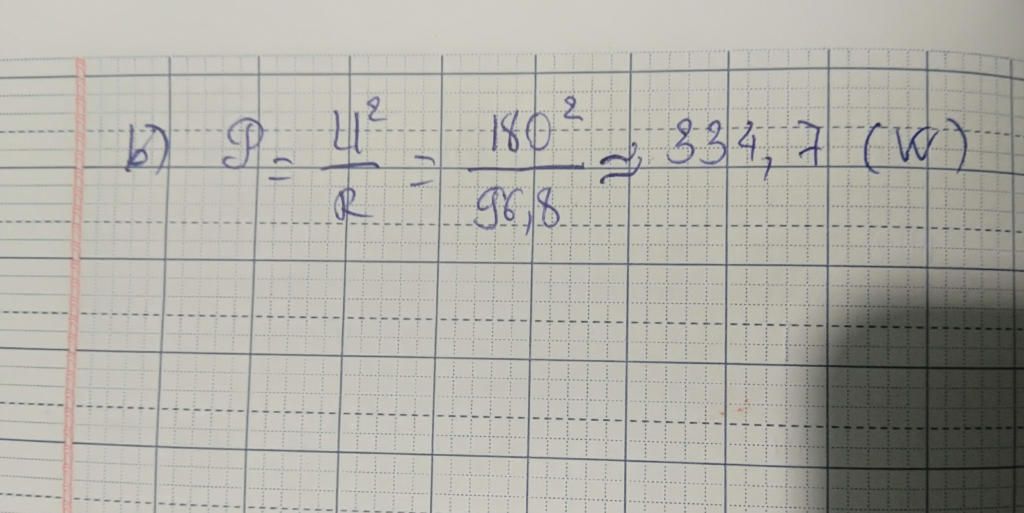 b) P = U² / R = 180² / 96,8 ≈ 334,7 (W)